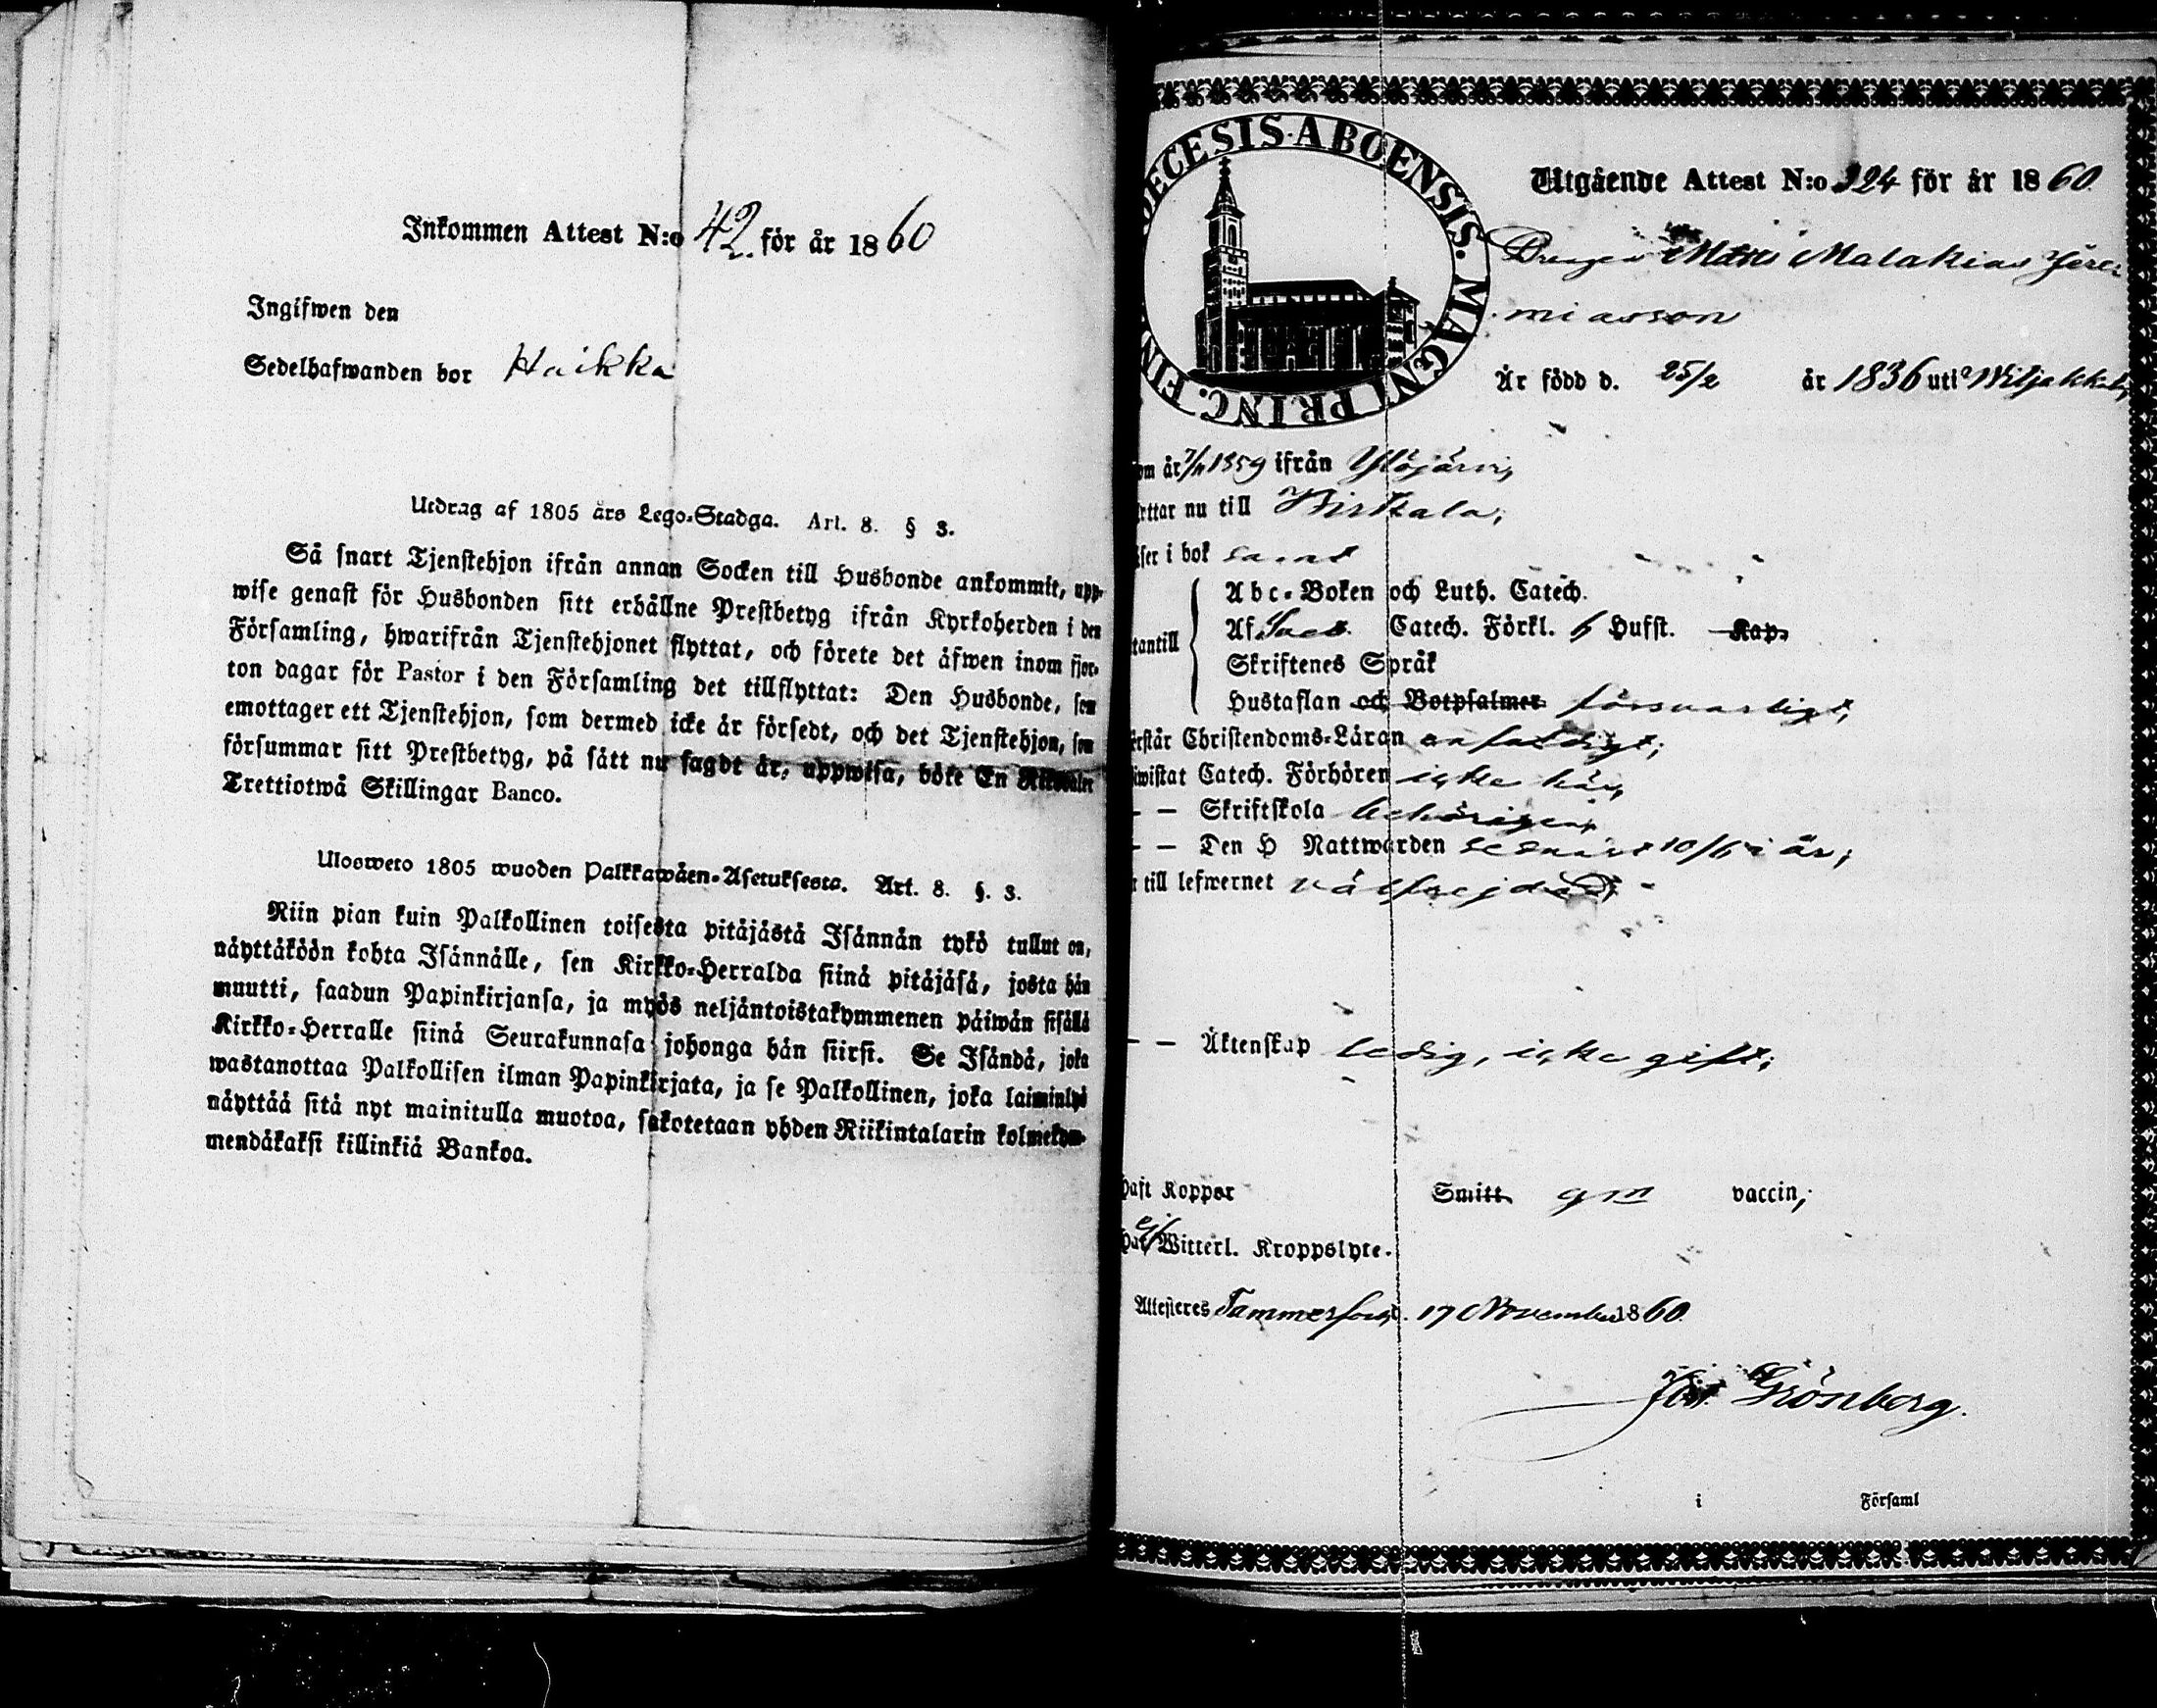 Inkommen Attest N:o 42. för år 1860
Ingifwen den
Sedelhafwanden bor Haikka
Utdrag af 1805 års Lego-Stadga. Art. 8. § 3.
Så snart Tjenstehjon ifrån annan Socken till Husbonde ankommit, upp-
wise genast för Husbonden sitt erhållne Prestbetyg ifrån Kyrkoherden i den
Församling, hwarifrån Tjenstehjonet flyttat, och förete det äfwen inom fjor-
ton dagar för Pastor i den Församling det tillflyttat: Den Husbonde, som
emottager ett Tjenstehjon, som dermed icke är försedt, och det Tjenstehjon, som
försummar sitt Prestbetyg, på sätt nu sagdt är, uppwisa, böte En Riksdaler
Trettiotwå Skillingar Banco.
Ulosweto 1805 wuoden Palkkawäen-Asetuksesta. Art. 8. §. 3.
Niin pian kuin Palkollinen toisesta pitäjästä Isännän tykö tullut on,
näyttäköön kohta Isännälle, sen Kirkko-Herralda siinä pitäjäsä, josta hän
muutti, saadun Papinkirjansa, ja myös neljäntoistakymmenen päiwän sisällä
Kirkko-Herralle siinä Seurakunnasa johonga hän siirsi. Se Isändä, joka
wastanottaa Palkollisen ilman Papinkirjata, ja se Palkollinen, joka laiminlyö
näyttää sitä nyt mainitulla muotoa, sakotetaan yhden Riikintalarin kolmekym-
mendäkaksi killinkiä Bankoa.
DECESIS ABOENSIS. MAGNI PRINC. FIN
Utgående Attest N:o 324 för år 1860.
Drengen Matts Malakias Jere-
miasson
Är född d. 25/2 år 1836 uti Wiljakkala,
om år 7/11 1859 ifrån Ylöjärvi,
yttar nu till Birkkala,
äser i bok samt
Abc-Boken och Luth. Catech.
tantill Af Catech. Förkl. 6 Hufst. Kap.
Skriftenes Språk
Hustaflan och Botpsalmer försvarligt,
erstår Christendoms-Läran enfaldigt;
iwistat Catech. Förhören icke här,
— — Skriftskola behörigen,
— — Den H Nattwarden senast 10/6 i år;
r till lefwernet välfrejdad,
— — Äktenskap ledig, icke gift;
haft Koppor Smitt gm vaccin,
har ej Witterl. Kroppslyte.
Attesteres Tammerfors d. 17 November 1860.
Grönberg.
i Församl